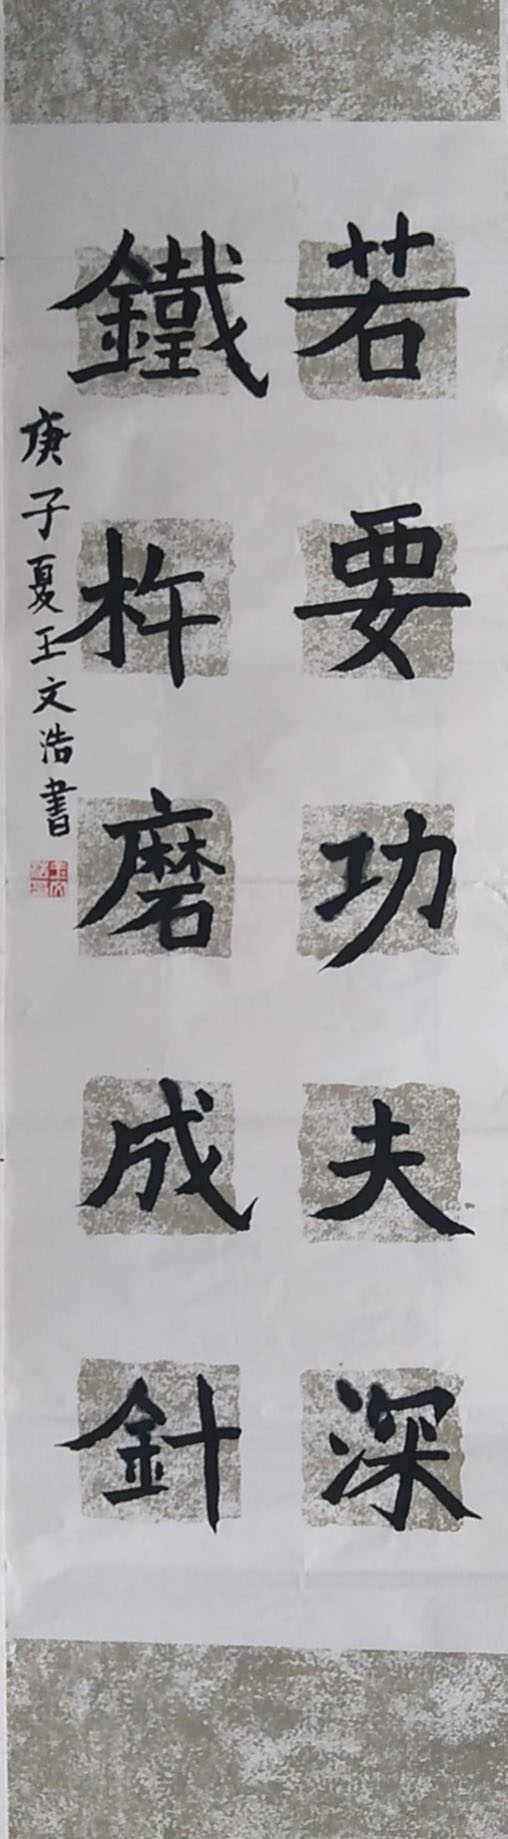 若要功夫深
鐵杵磨成針
庚子夏王文浩書